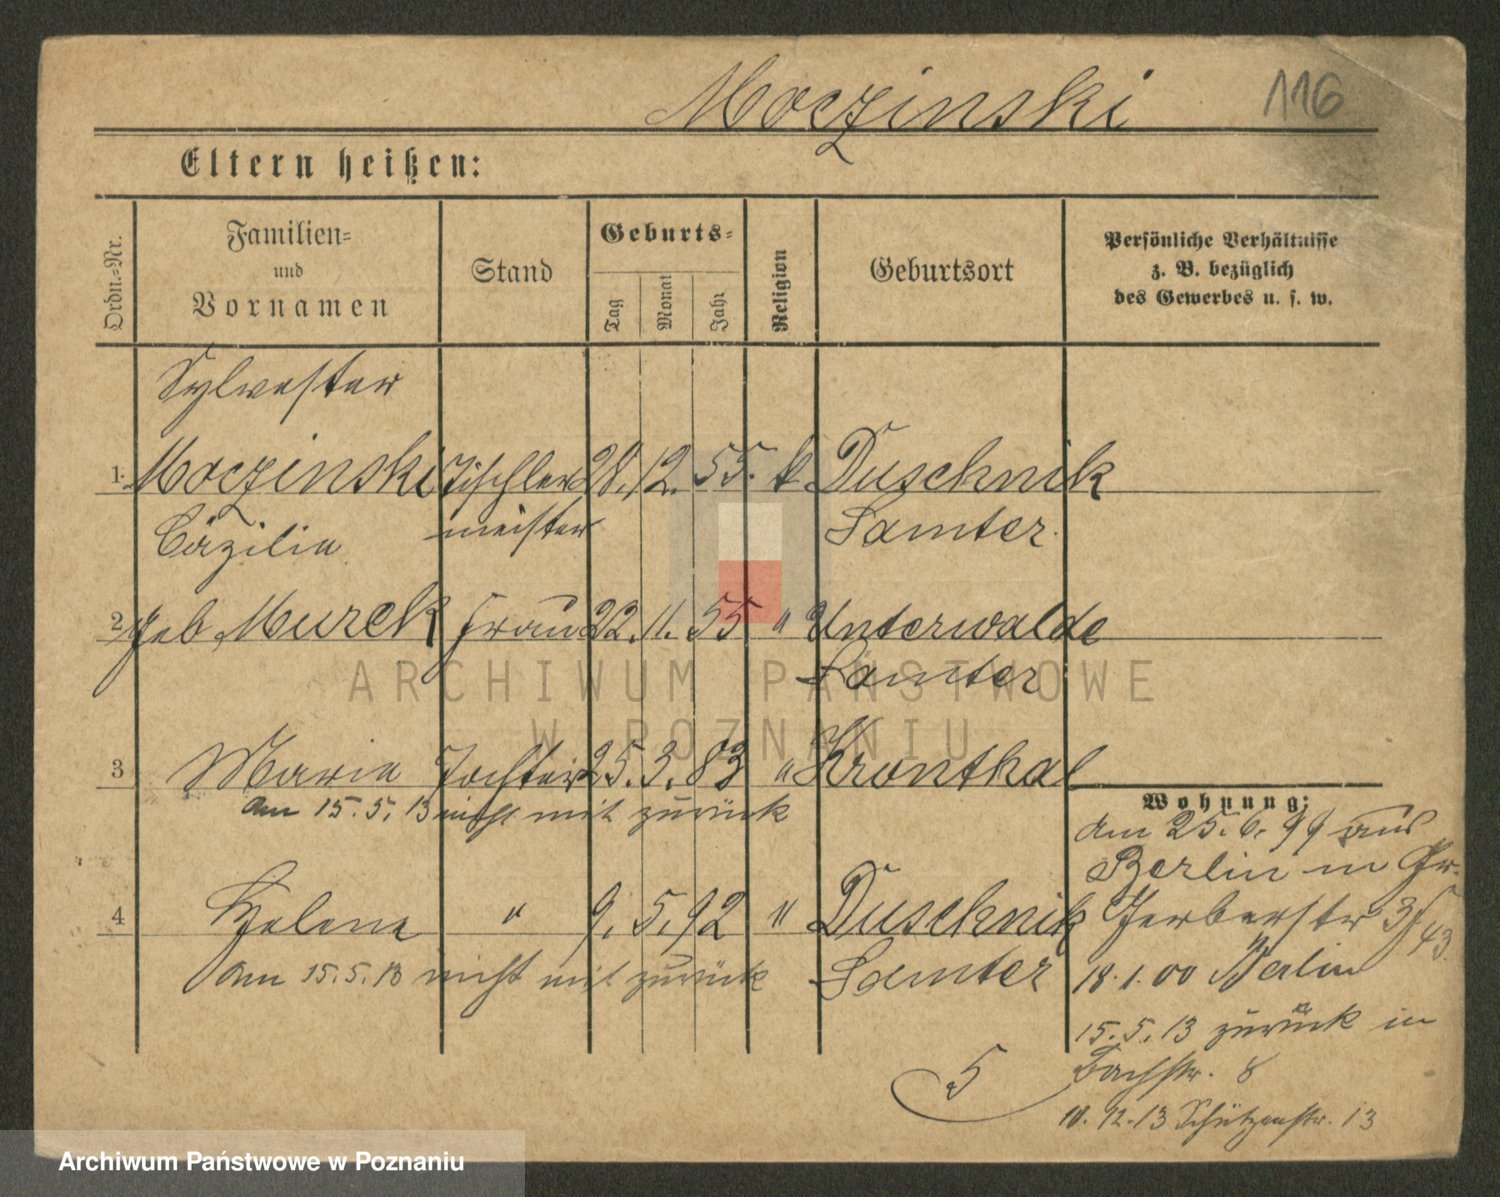 Moczinski 116
Eltern heißen:
Ordn.=Nr.
Familien=
und
Vornamen
Stand
Geburts=
Tag
Monat
Jahr
Religion
Geburtsort
Persönliche Verhältnisse
z. B. bezüglich
des Gewerbes u. s. w.
Sylvester
1. Moczinski Tischler 28. 12. 55. k Duschnik
Cäzilia meister Samter.
2 geb. Murek Frau 22. 11. 55 " Unterwalde
Samter
3 Maria Tochter 25. 3. 83 " Kronthal
am 15.5.13 nicht mit zurück
4 Helene " 9. 5. 92 " Duschnik
am 15.5.13 nicht mit zurück Samter
Wohnung:
am 25. 6. 99 aus
Berlin in Gr.
Gerberstr 43.
18.1.00 Berlin
15.5.13 zurück in
Bachstr. 8
5
12.13 Schützenstr. 13
ARCHIWUM PAŃSTWOWE
W POZNANIU
Archiwum Państwowe w Poznaniu